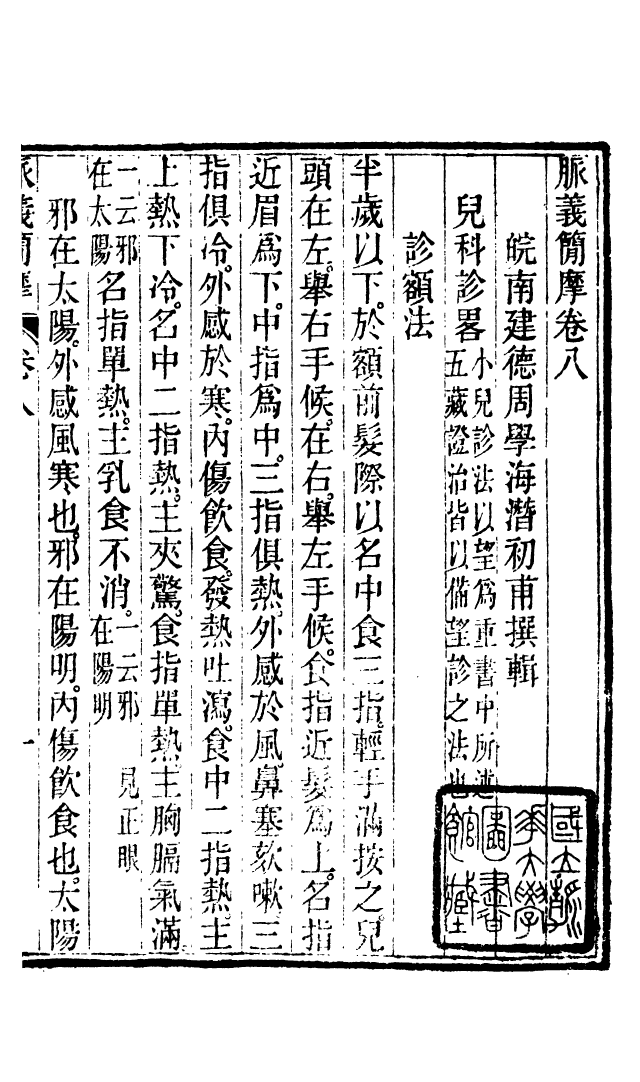 脈義簡摩卷八
皖南建德周學海潛初甫撰輯
兒科診畧
小兒診法以望爲重書中所述
五藏證治皆以備望診之法也
診額法
半歲以下。於額前髮際以名中食三指。輕手滿按之。兒
頭在左。舉右手候。在右。舉左手候。食指近髮爲上。名指
近眉爲下。中指爲中。三指俱熱。外感於風。鼻塞欬嗽。三
指俱冷。外感於寒。內傷飲食。發熱吐瀉。食中二指熱。主
上熱下冷。名中二指熱。主夾驚。食指單熱。主胸膈氣滿。
一云邪
在太陽
名指單熱。主乳食不消。
一云邪
在陽明
見正眼
邪在太陽。外感風寒也。邪在陽明。內傷飲食也。太陽
脈義簡摩
卷八
一
國立
大學
圖書
館藏